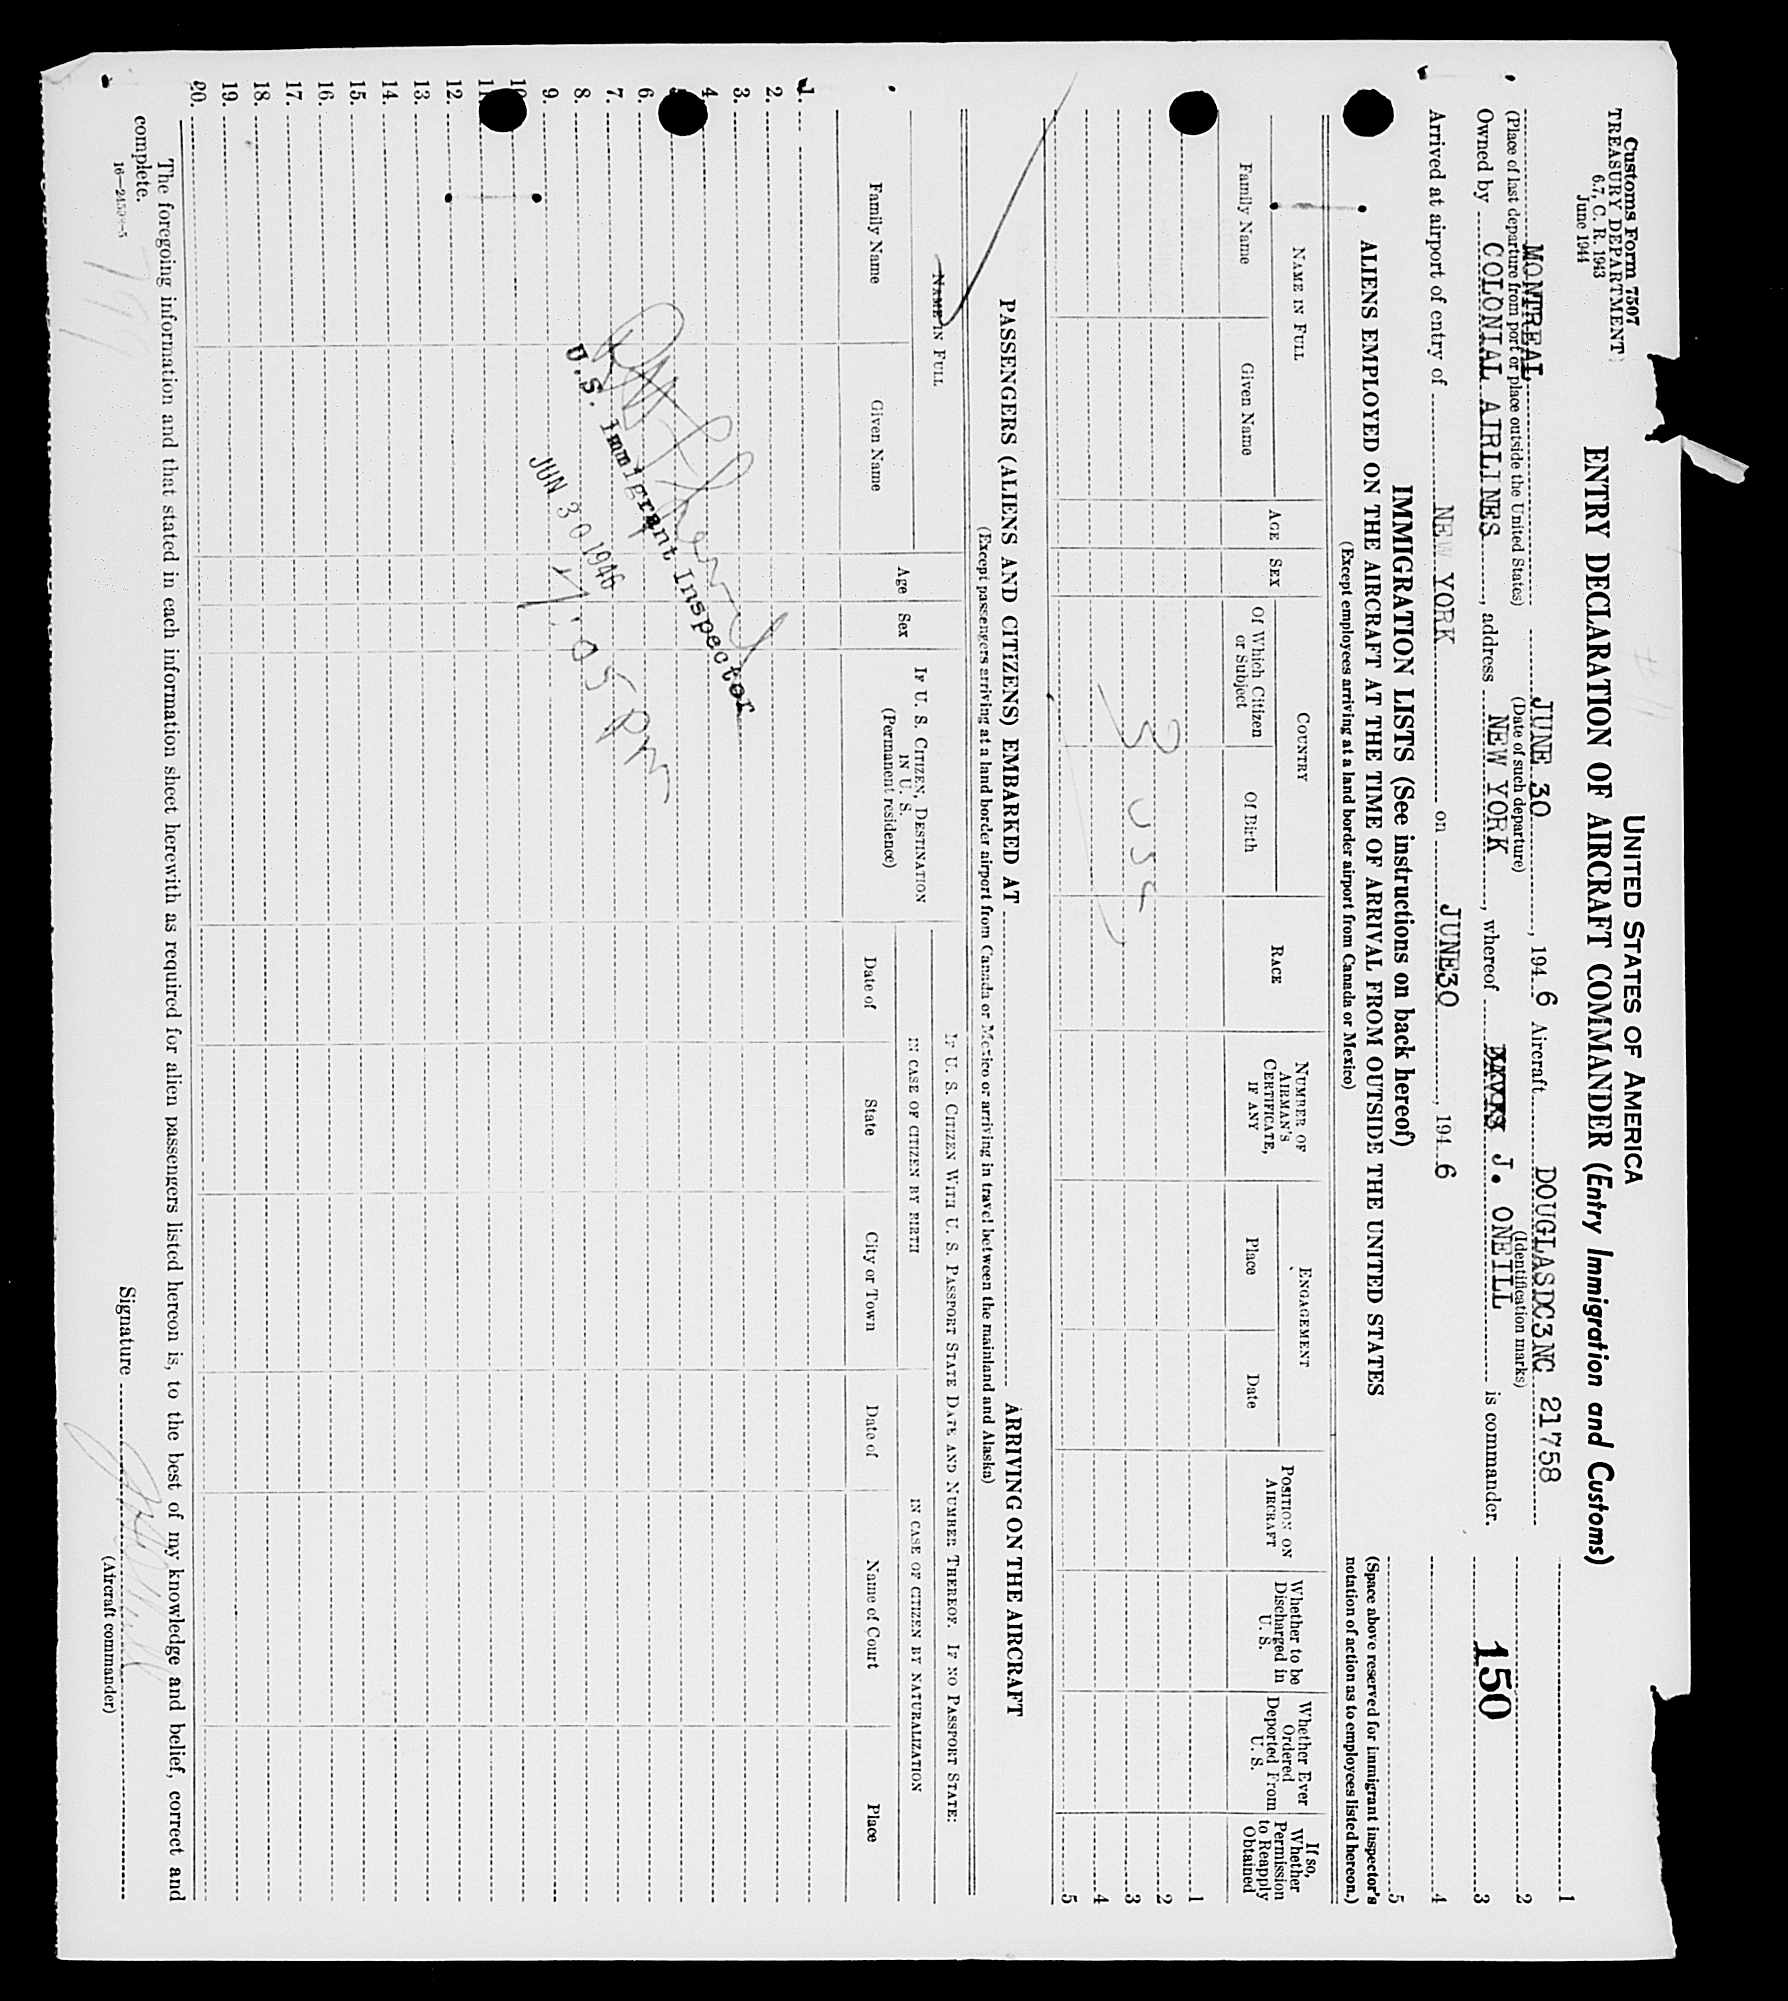 Customs Form 7507
TREASURY DEPARTMENT
6.7, C. R. 1943
June 1944
UNITED STATES OF AMERICA
ENTRY DECLARATION OF AIRCRAFT COMMANDER (Entry Immigration and Customs)
MONTREAL JUNE 30, 1946 Aircraft DOUGLASDC3NC 21758
(Place of last departure from port or place outside the United States) (Date of such departure) (Identification marks)
Owned by COLONIAL AIRLINES, address NEW YORK, whereof J. ONEILL is commander.
Arrived at airport of entry of NEW YORK on JUNE30, 1946
1
2
3
4
5
150
(Space above reserved for immigrant inspector's
notation of action as to employees listed hereon.)
IMMIGRATION LISTS (See instructions on back hereof)
ALIENS EMPLOYED ON THE AIRCRAFT AT THE TIME OF ARRIVAL FROM OUTSIDE THE UNITED STATES
(Except employees arriving at a land border airport from Canada or Mexico)
NAME IN FULL
Family Name
Given Name
AGE
SEX
COUNTRY
Of Which Citizen
or Subject
Of Birth
RACE
NUMBER OF
AIRMAN'S
CERTIFICATE,
IF ANY
ENGAGEMENT
Place
Date
POSITION ON
AIRCRAFT
Whether to be
Discharged in
U. S.
Whether Ever
Ordered
Deported From
U. S.
If so,
Whether
Permission
to Reapply
Obtained
1
2
3
4
5
3 USC
PASSENGERS (ALIENS AND CITIZENS) EMBARKED AT ARRIVING ON THE AIRCRAFT
(Except passengers arriving at a land border airport from Canada or Mexico or arriving in travel between the mainland and Alaska)
NAME IN FULL
Family Name
Given Name
Age
Sex
IF U. S. CITIZEN, DESTINATION
IN U. S.
(Permanent residence)
IF U. S. CITIZEN WITH U. S. PASSPORT STATE DATE AND NUMBER THEREOF. IF NO PASSPORT STATE:
IN CASE OF CITIZEN BY BIRTH
Date of
State
City or Town
IN CASE OF CITIZEN BY NATURALIZATION
Date of
Name of Court
Place
1.
2.
3.
4.
6.
7.
8.
9.
10
11
12.
13.
14.
15.
16.
17.
18.
19.
20.
U.S. Immigrant Inspector
JUN 30 1946
7:05 PM
The foregoing information and that stated in each information sheet herewith as required for alien passengers listed hereon is, to the best of my knowledge and belief, correct and
complete.
Signature
(Aircraft commander)